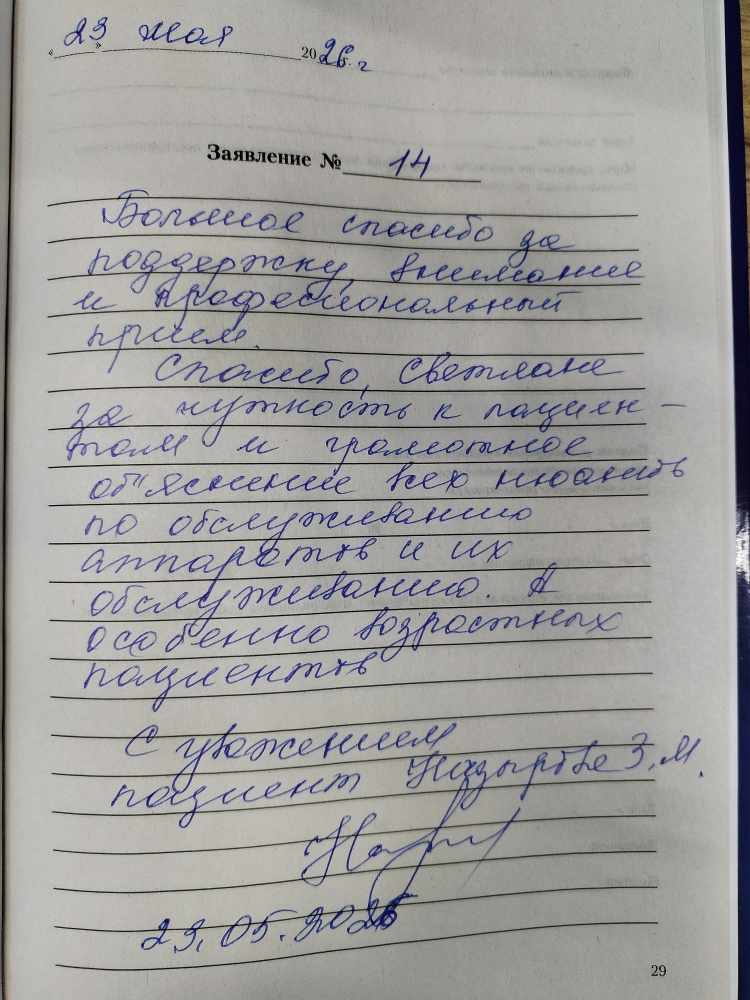 « 23 » мая 2026 г. г
Заявление № 14
Большое спасибо за
поддержку, внимание
и професиональный
прием.
Спасибо, Светлане
за чуткость к пациен-
там и грамотное
об"яснение всех нюансов
по обслуживанию
аппаратов и их
обслуживанию. А
особенно возрастных
пациентов
С уважением
пациент З.М.
23.05.2026
29